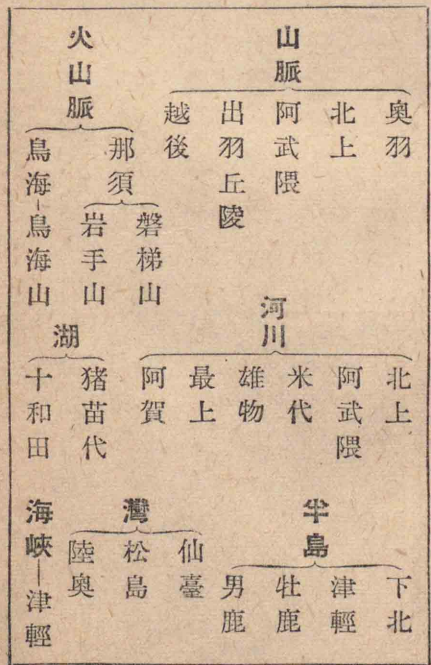 山脈
奥羽
北上
阿武隈
出羽丘陵
越後
火山脈
那須
磐梯山
岩手山
鳥海-鳥海山
河川
北上
阿武隈
米代
雄物
最上
阿賀
湖
猪苗代
十和田
半島
下北
津輕
牡鹿
男鹿
灣
仙臺
松島
陸奥
海峽-津輕